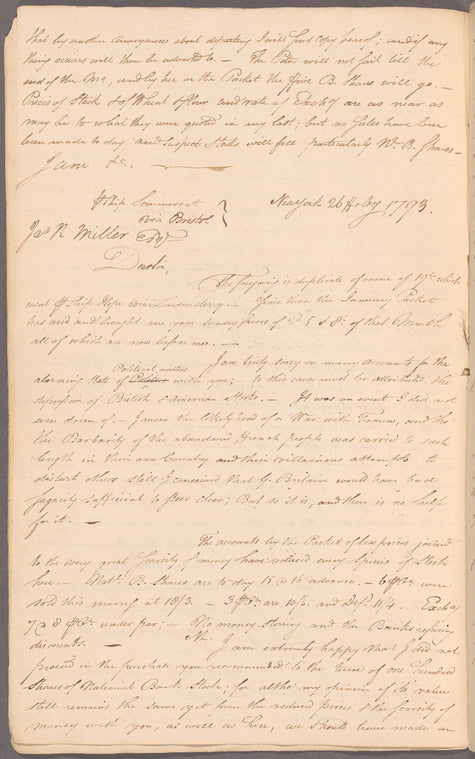 that by another conveyance about departing I will send Copy hereof; and if any
thing occurs will then be adverted to. — The Peter will not sail till the
end of the Mo., and by her or the Packet the five B. Shares will go. —
Prices of Stock & of Wheat & flour and rate of Exch. are as near as
may be to what they were quoted in my last; but no Sales have been
been made to day and suspect Stocks will fall particularly Nl. B. Shares —
I am &c. —
New York 26 Feby 1793.
⅌ Ship Sommerset
via Bristol
Jas. R Miller Esqr
Dublin,
The foregoing is duplicate of mine of 19th which
went ⅌ Ship Hope via Londonderry. — Since then the January Packet
has arrd. and brought me your Sunday favors of 5 & 8th. of that Month
all of which are now before me. —
I am truly sorry on many accounts for the
Political matters
alarming State of with you; to this cause must be attributed the
depression of British & American Stocks. — It was an event I did not
even dream of. — I mean the likelyhood of a War with France, and tho
the Barbarity of the abandoned french people was carried to such
length in their own Country and their villainous attempts to
disturb others still I conceived that G. Britain would have had
sagacity sufficient to steer clear; But so it is, and there is no help
for it. —
The accounts by the Packet of low prices joined
to the very great scarcity of money have reduced every Species of Stock
here. — Natl. B. Shares are to day 15 @ 16 advance. — 6 ⅌Cts. were
sold this morng at 18/3. — 3 ⅌Cts. are 10/6. and Defd. 11/4. Exch. a
7 @ 8 ⅌Ct. under par; — No money stiring and the Banks refusing
discounts. —
I am extremely happy that I did not
proceed in the purchase you recommended to the tune of one hundred
Shares of National Bank Stock; for altho' my opinion of its value
still remains the same yet from the reduced prices & the scarcity of
money with you, as well as here, we should have made an